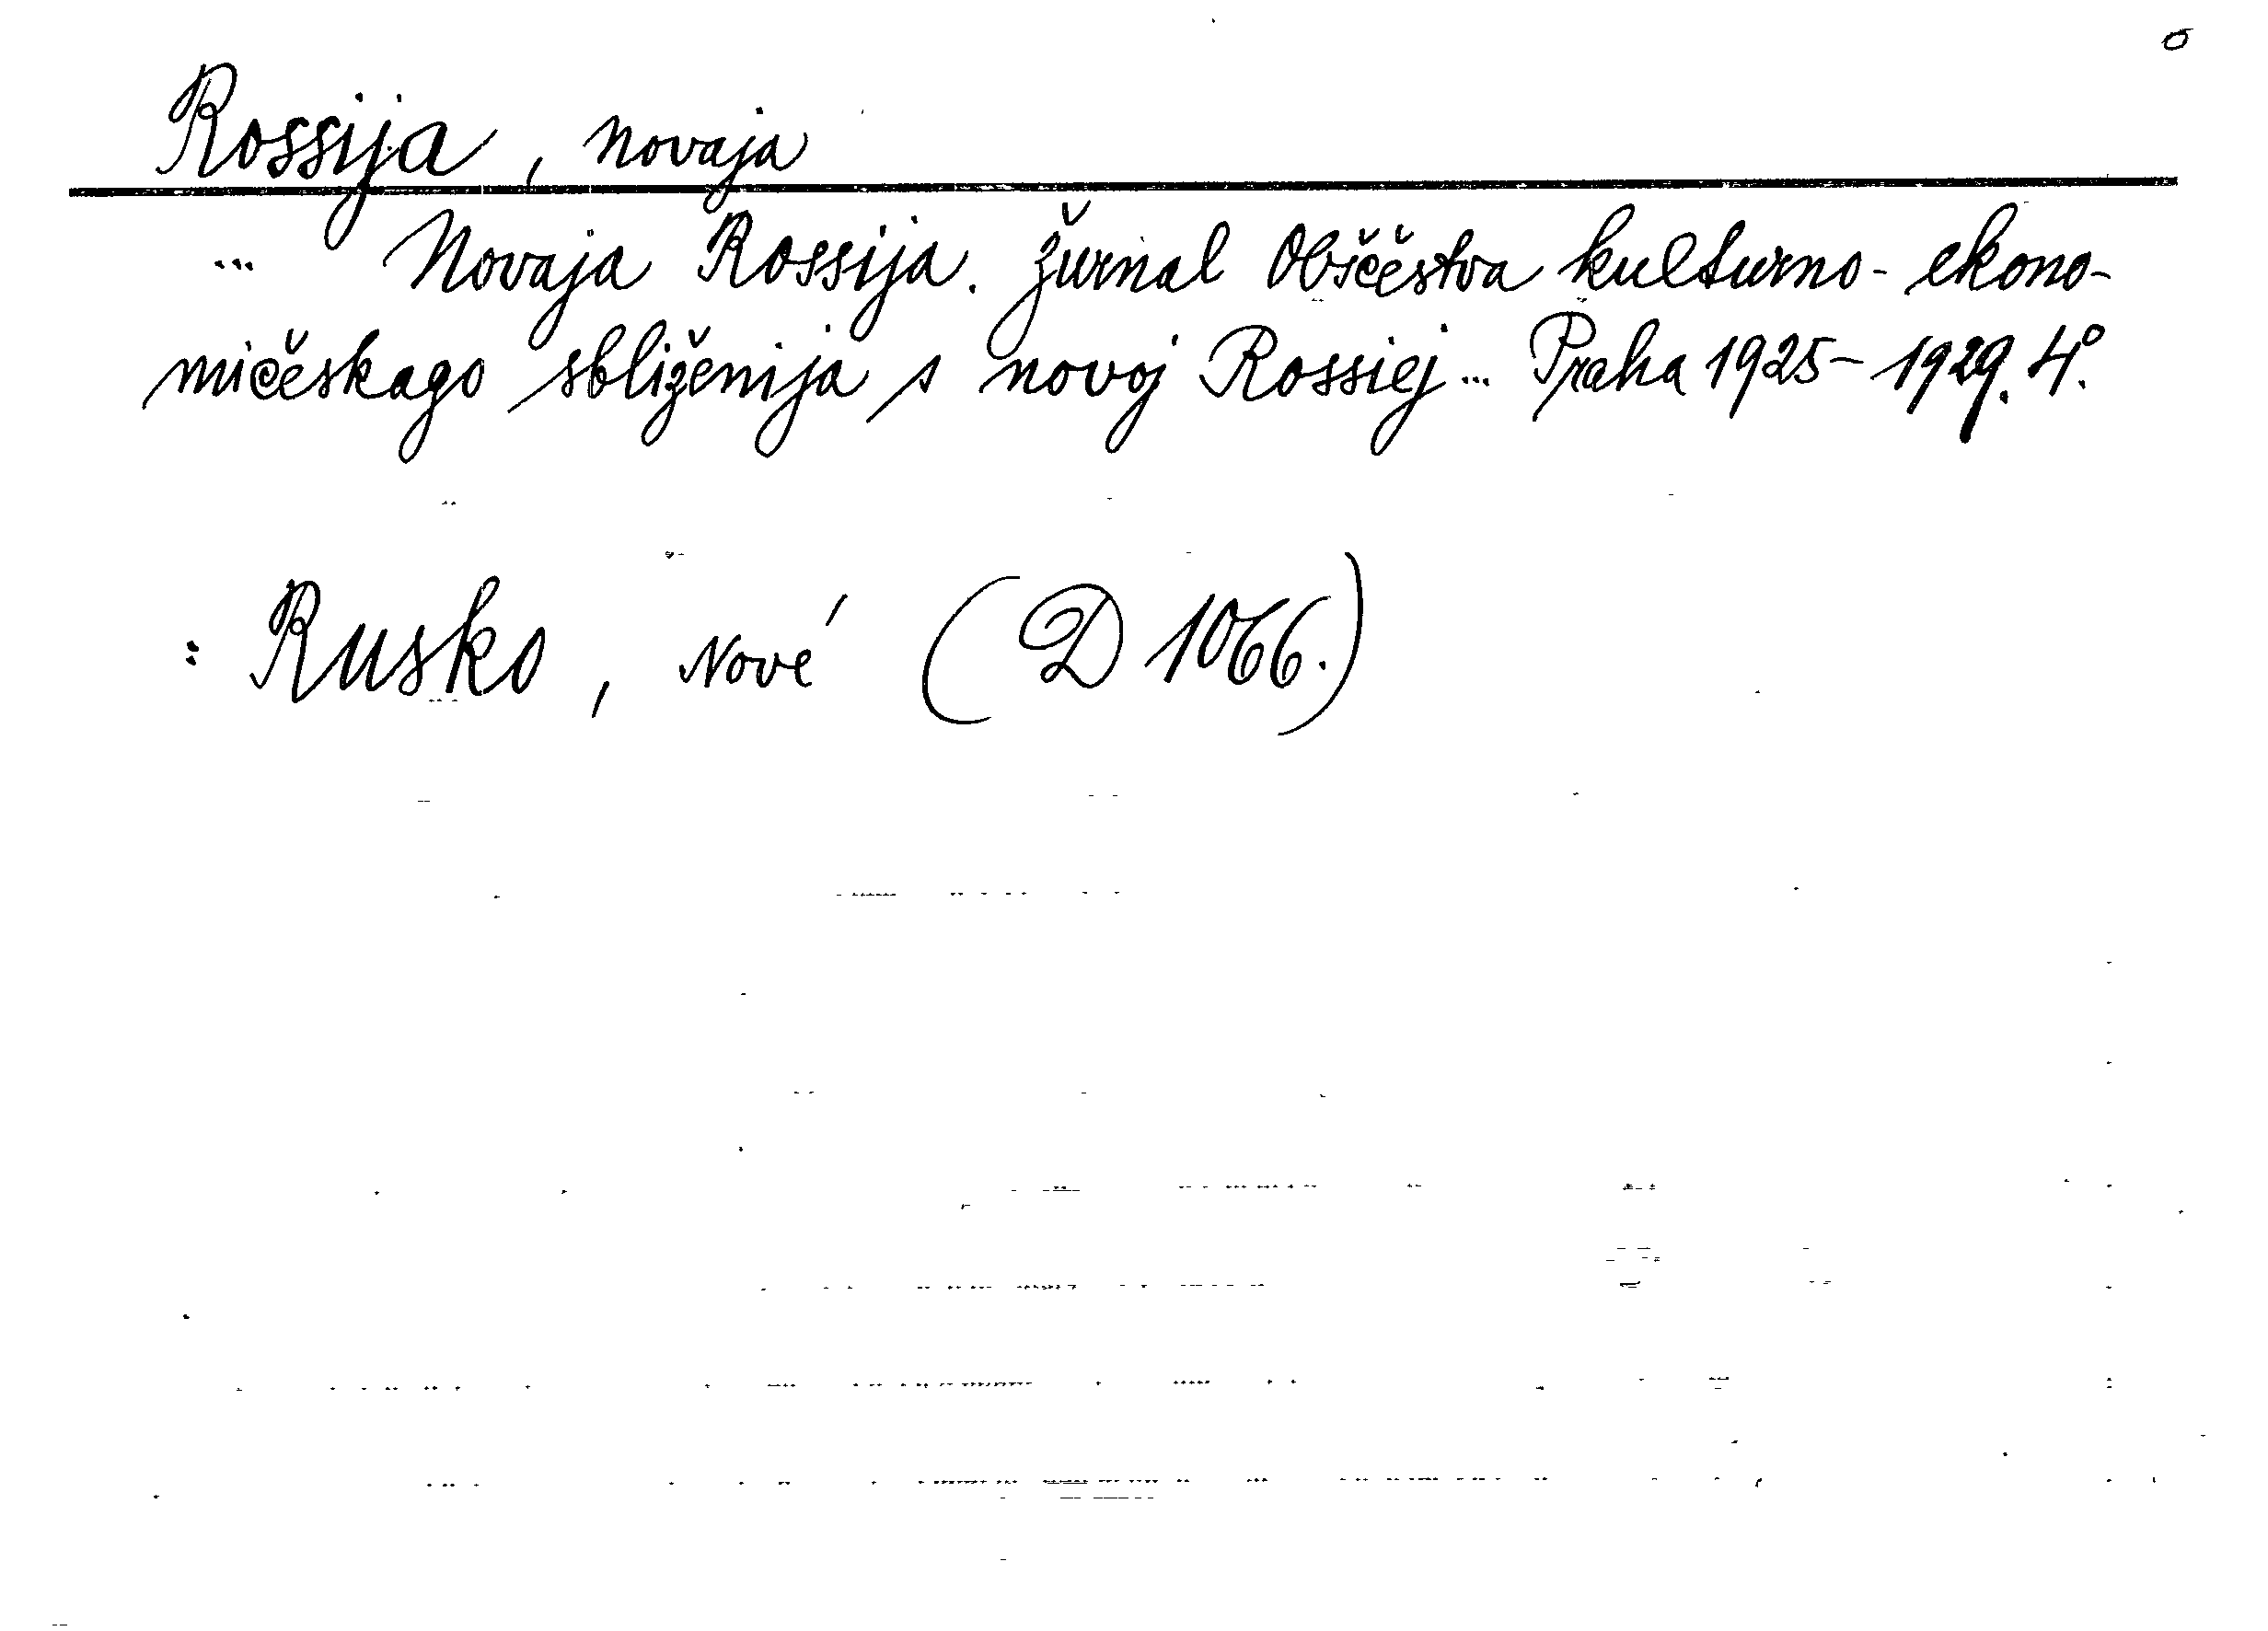 Rossija, novaja
... Novaja Rossija. Žurnal Obščestva kulturno-ekono-
mičeskago sbliženija s novoj Rossiej... Praha 1925-1929. 4°.
: Rusko, Nové (D 1066.)